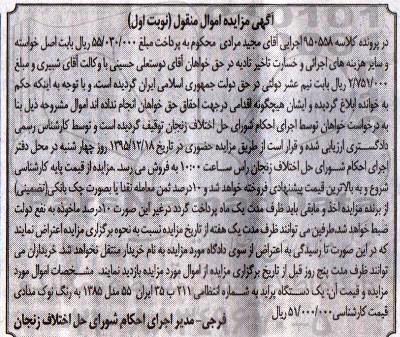 آگهی مزایده اموال منقول (نوبت اول)
در پرونده کلاسه ۹۵۰۵۵۸ اجرایی آقای مجید مرادی محکوم به پرداخت مبلغ ۵۵/۰۳۰/۰۰۰ ریال بابت اصل خواسته
و سایر هزینه های اجرائی و خسارت تاخیر تادیه در حق خواهان آقای دوستعلی حسینی با وکالت آقای شبیری و مبلغ
۲/۷۵۱/۰۰۰ بابت نیم عشر دولتی در حق دولت جمهوری اسلامی ایران گردیده است. و با توجه به اینکه حکم
به خوانده ابلاغ گردیده و ایشان هیچگونه اقدامی درجهت احقاق حق خواهان انجام نداده اند اموال مشروحه ذیل بنا
به درخواست خواهان توسط اجرای احکام شورای حل اختلاف زنجان توقیف گردیده است و توسط کارشناس رسمی
دادگستری ارزیابی شده و قرار است از طریق مزایده حضوری در تاریخ ۱۳۹۵/۱۲/۱۸ روز چهار شنبه در محل دفتر
اجرای احکام شورای حل اختلاف زنجان راس ساعت ۱۰:۰۰ به فروش می رسد. مزایده از قیمت پایه کارشناسی
شروع و به بالاترین قیمت پیشنهادی فروخته خواهد شد و ۱۰درصد ثمن معامله نقدا یا بصورت چک بانکی(تضمینی)
از برنده مزایده اخذ و مابقی باید ظرف مدت یک ماه پرداخت گردد درغیر این صورت ۱۰درصد ماخوذه به نفع دولت
ضبط خواهد شد.طرفین می توانند ظرف مدت یک هفته از تاریخ مزایده نسبت به نحوه برگزاری مزایده اعتراض نمایند
که در این صورت تا رسیدگی به اعتراض از سوی دادگاه مورد مزایده به نام خریدار منتقل نخواهد شد. خریداران می
توانند ظرف مدت پنج روز قبل از تاریخ برگزاری مزایده از اموال مورد مزایده بازدید نمایند. مشخصات اموال مورد
مزایده و قیمت آن: یک دستگاه پراید به شماره انتظامی ۲۱۱ ب ۳۵ ایران ۵۵ مدل ۱۳۸۵ به رنگ نوک مدادی
قیمت کارشناسی ۵۱/۰۰۰/۰۰۰ ریال
فرجی- مدیر اجرای احکام شورای حل اختلاف زنجان